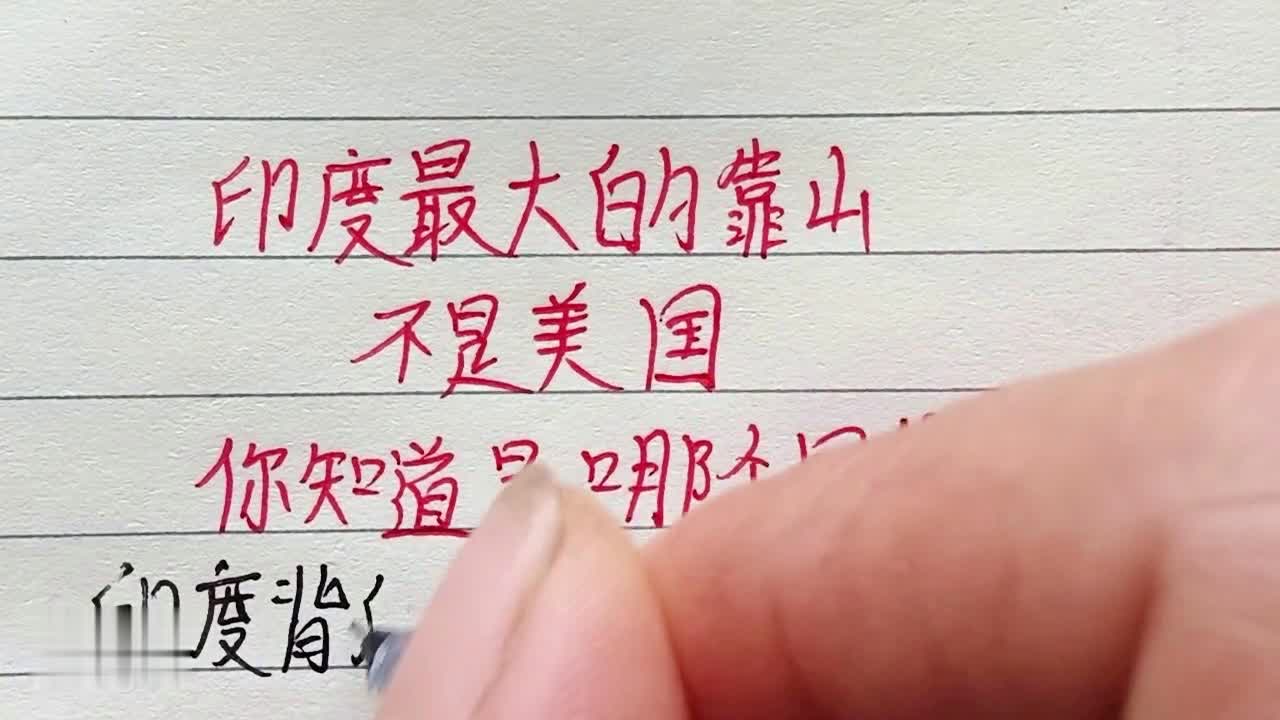 印度最大的靠山
不是美国
你知道是哪个
印度背